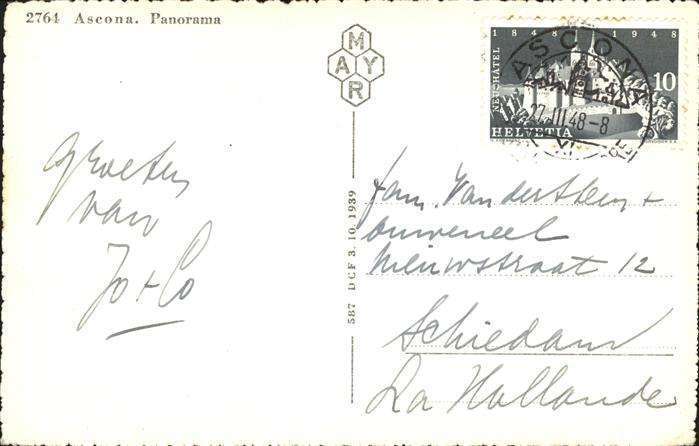 2764 Ascona. Panorama
MAYR
1848 1948
NEUCHÂTEL
10
HELVETIA
ASCONA
27.III.48-8
587 DCF 3.10.1939
Groeten
van
Jo + Co
fam. Van der Steen +
Ouweneel
Nieuwstraat 12
Schiedam
La Hollande